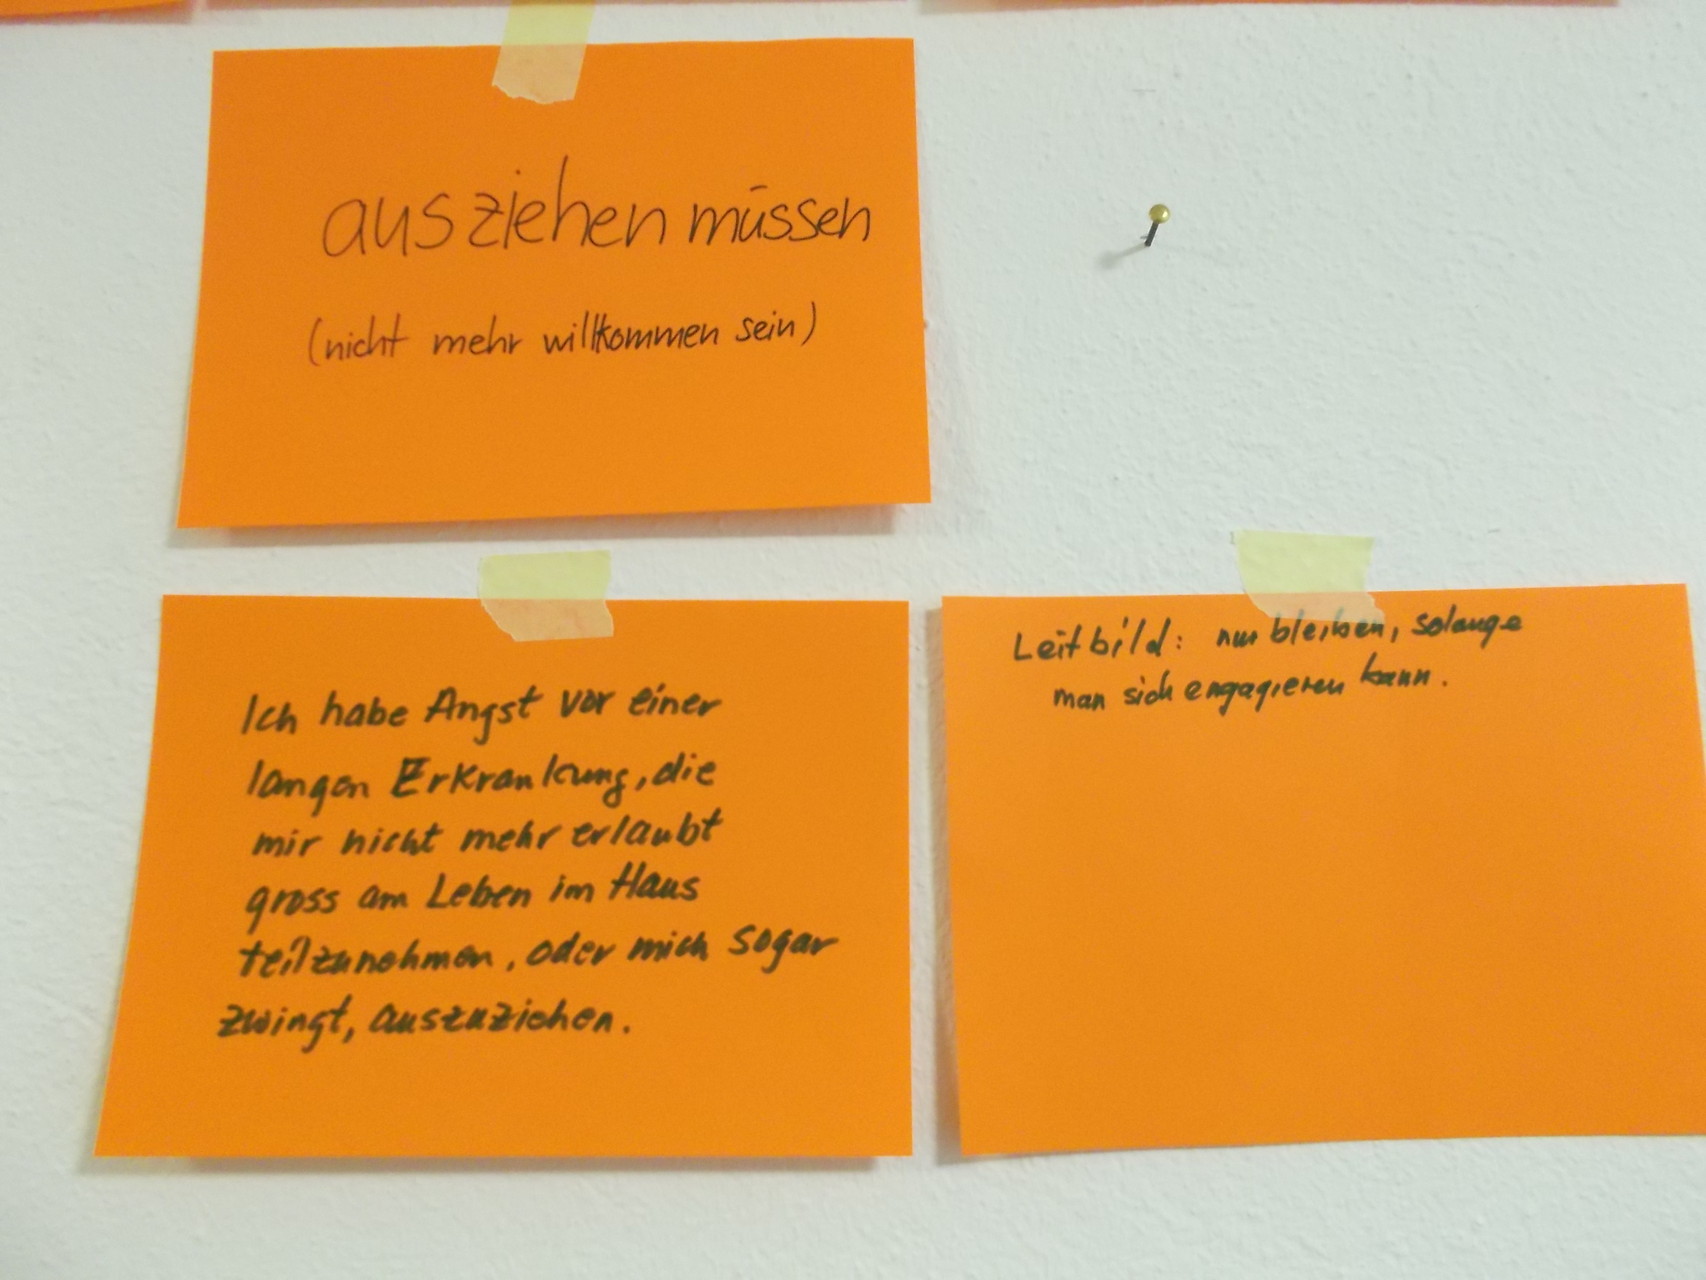 ausziehen müssen
(nicht mehr willkommen sein)
Ich habe Angst vor einer
langen Erkrankung, die
mir nicht mehr erlaubt
gross am Leben im Haus
teilzunehmen, oder mich sogar
zwingt, auszuziehen.
Leitbild: nur bleiben, solange
man sich engagieren kann.